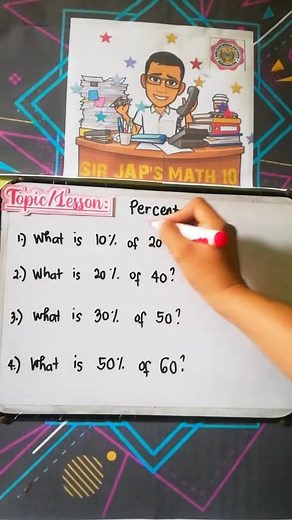 SIR JAP'S MATH 10
Topic/Lesson: Percent
1.) What is 10% of 20
2.) What is 20% of 40?
3.) What is 30% of 50?
4.) What is 50% of 60?